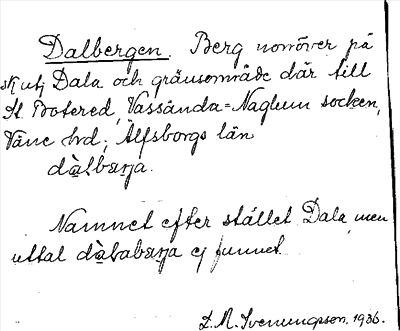 Dalbergen. Berg norröver på
sk utj Dala och gränsområde där till
St. Botered, Vassända=Naglum socken,
Väne hrd; Älfsborgs län
dàlbærja.
Namnet efter stället Dala, men
uttal dàlabærja ej funnet.
L. M. Svenungsson, 1936.